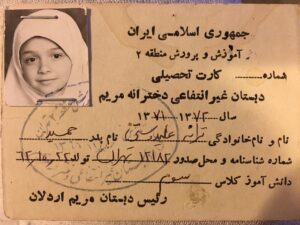 جمهوری اسلامی ایران
آموزش و پرورش منطقه ۲
شماره ............ کارت تحصیلی ............
دبستان غیرانتفاعی دخترانه مریم
سال ۱۳۷۲ - ۱۳۷۱
نام و نام‌خانوادگی ترانه علیدوستی نام پدر حمید
شماره شناسنامه و محل صدور ۱۲۱۸۲ تهران تولد ۶۲،۱۰،۲۲
دانش‌آموز کلاس سوم
رئیس دبستان مریم اردلان